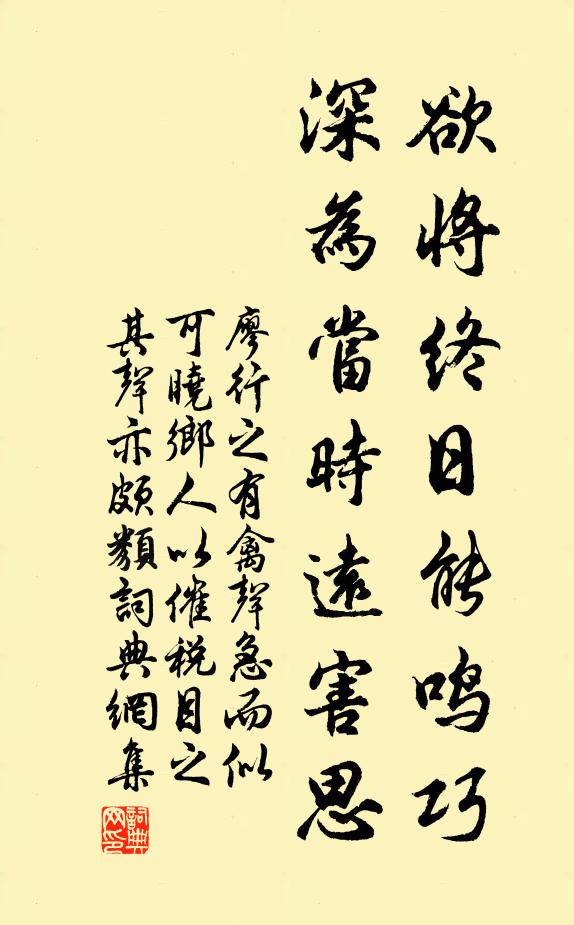 欲將終日能鳴巧
深為當時遠害思
廖行之有禽聲急而似
可曉鄉人以催稅目之
其聲亦頗類詞典網集
詞典
网印